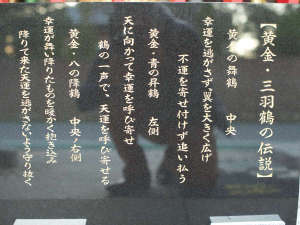 【黄金・三羽鶴の伝説】
黄金の舞鶴　中央
幸運を逃がさず、翼を大きく広げ
不運を寄せ付けず追い払う
黄金・青の昇鶴　左側
天に向かって幸運を呼び寄せ
鶴の一声で、天運を呼び寄せる
黄金・八の降鶴　中央右側
幸運が舞い降りたものを暖かく抱き込み
降りて来た天運を逃がさないよう守り抜く